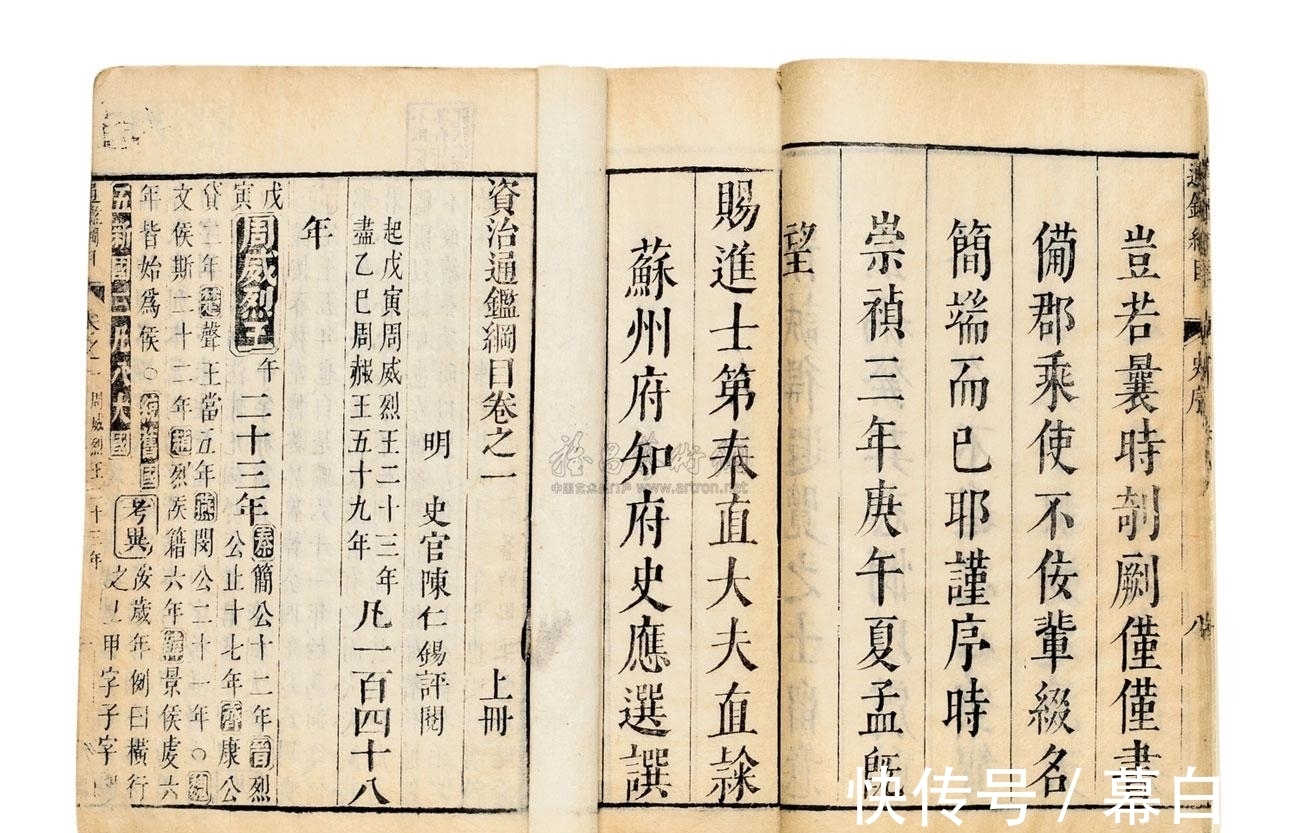 豈若曩時剞劂僅僅書
備郡乘使不佞輩綴名
簡端而已耶謹序時
崇禎三年庚午夏孟既
望
賜進士第奉直大夫直隸
蘇州府知府史應選譔
資治通鑑綱目卷之一
上冊
明 史官陳仁錫評閱
起戊寅周威烈王二十三年
盡乙巳周赧王五十九年
凡一百四十八
年
戊寅
周威烈王
午
二十三年
秦簡公十二年晉烈
公止十七年齊康公
貸二年楚聲王當五年燕閔公三十一年〇魏
文侯斯二十二年趙烈侯籍六年韓景侯虔六
年皆始爲侯〇
舊國
考異
歲年例曰橫行
之上甲字子字
五新國三凡八大國
周威烈王二十三年
裕昌艺术网
中国艺术品门户 www.artron.net
快传号 / 幕白